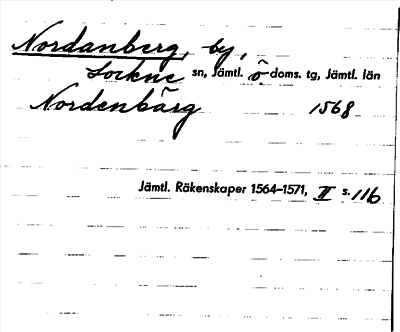 Nordanberg, by,
Lockne sn, Jämtl. ö doms. tg, Jämtl. län
Nordenbärg 1568
Jämtl. Räkenskaper 1564–1571, II s. 116